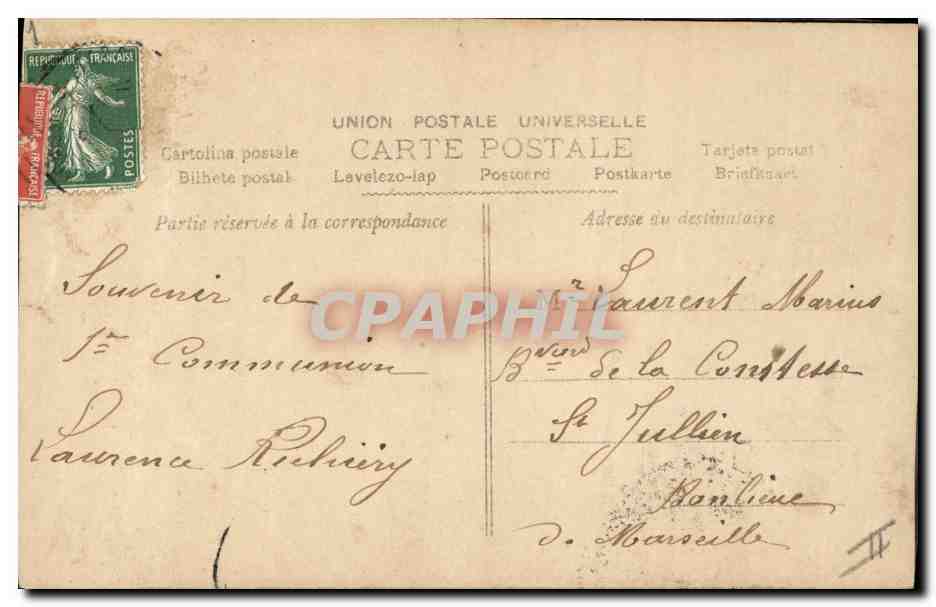 REPUBLIQUE FRANÇAISE
POSTES
REPUBLIQUE FRANÇAISE
UNION POSTALE UNIVERSELLE
CARTE POSTALE
Cartolina postale
Tarjeta postal
Bilhete postal
Levelezo-lap Postcard Postkarte
Briefkaart
Partie réservée à la correspondance
Adresse du destinataire
Souvenir de
1re Communion
Laurence
Mr Laurent Marius
de la Comtesse
St Jullien
Banlieue
de Marseille
CPAPHIL
II